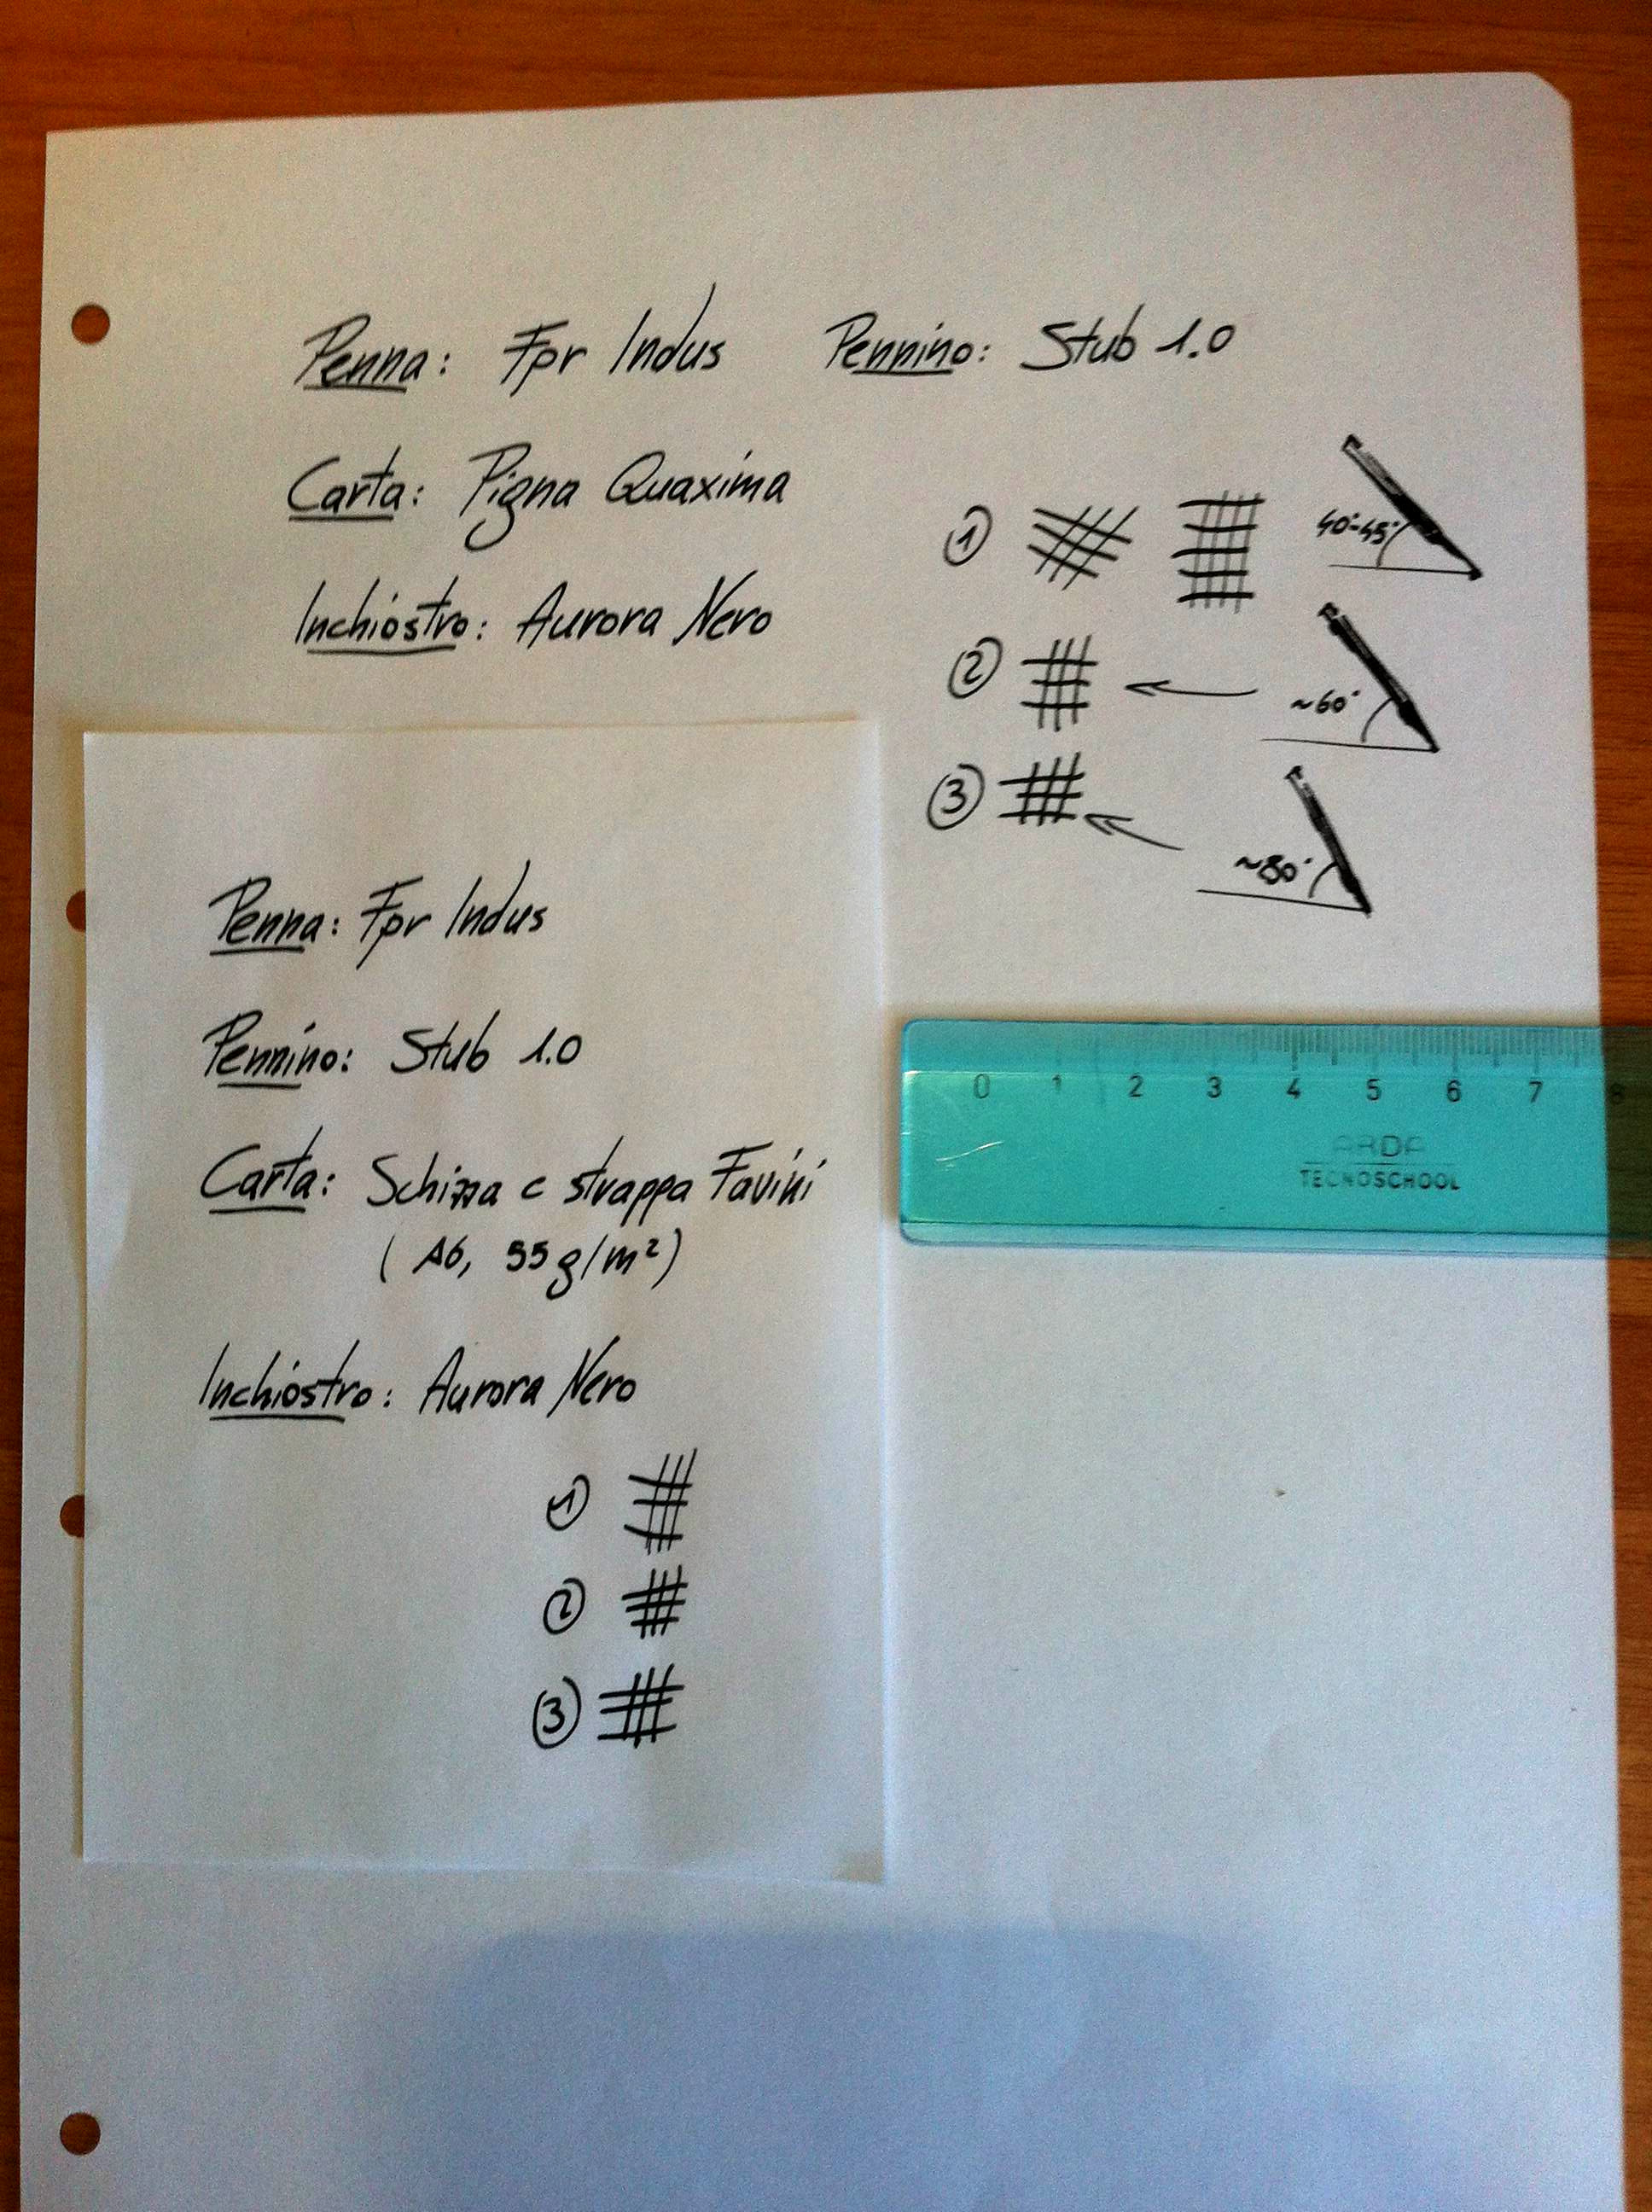 Penna: Fpr Indus Pennino: Stub 1.0
Carta: Pigna Quaxima
1 40°-45°
Inchiostro: Aurora Nero
2 ~60°
3 ~80°
Penna: Fpr Indus
Pennino: Stub 1.0
Carta: Schizza e strappa Favini
(A6, 55 g/m²)
Inchiostro: Aurora Nero
1
2
3
0 1 2 3 4 5 6 7 8
ARDA
TECNOSCHOOL